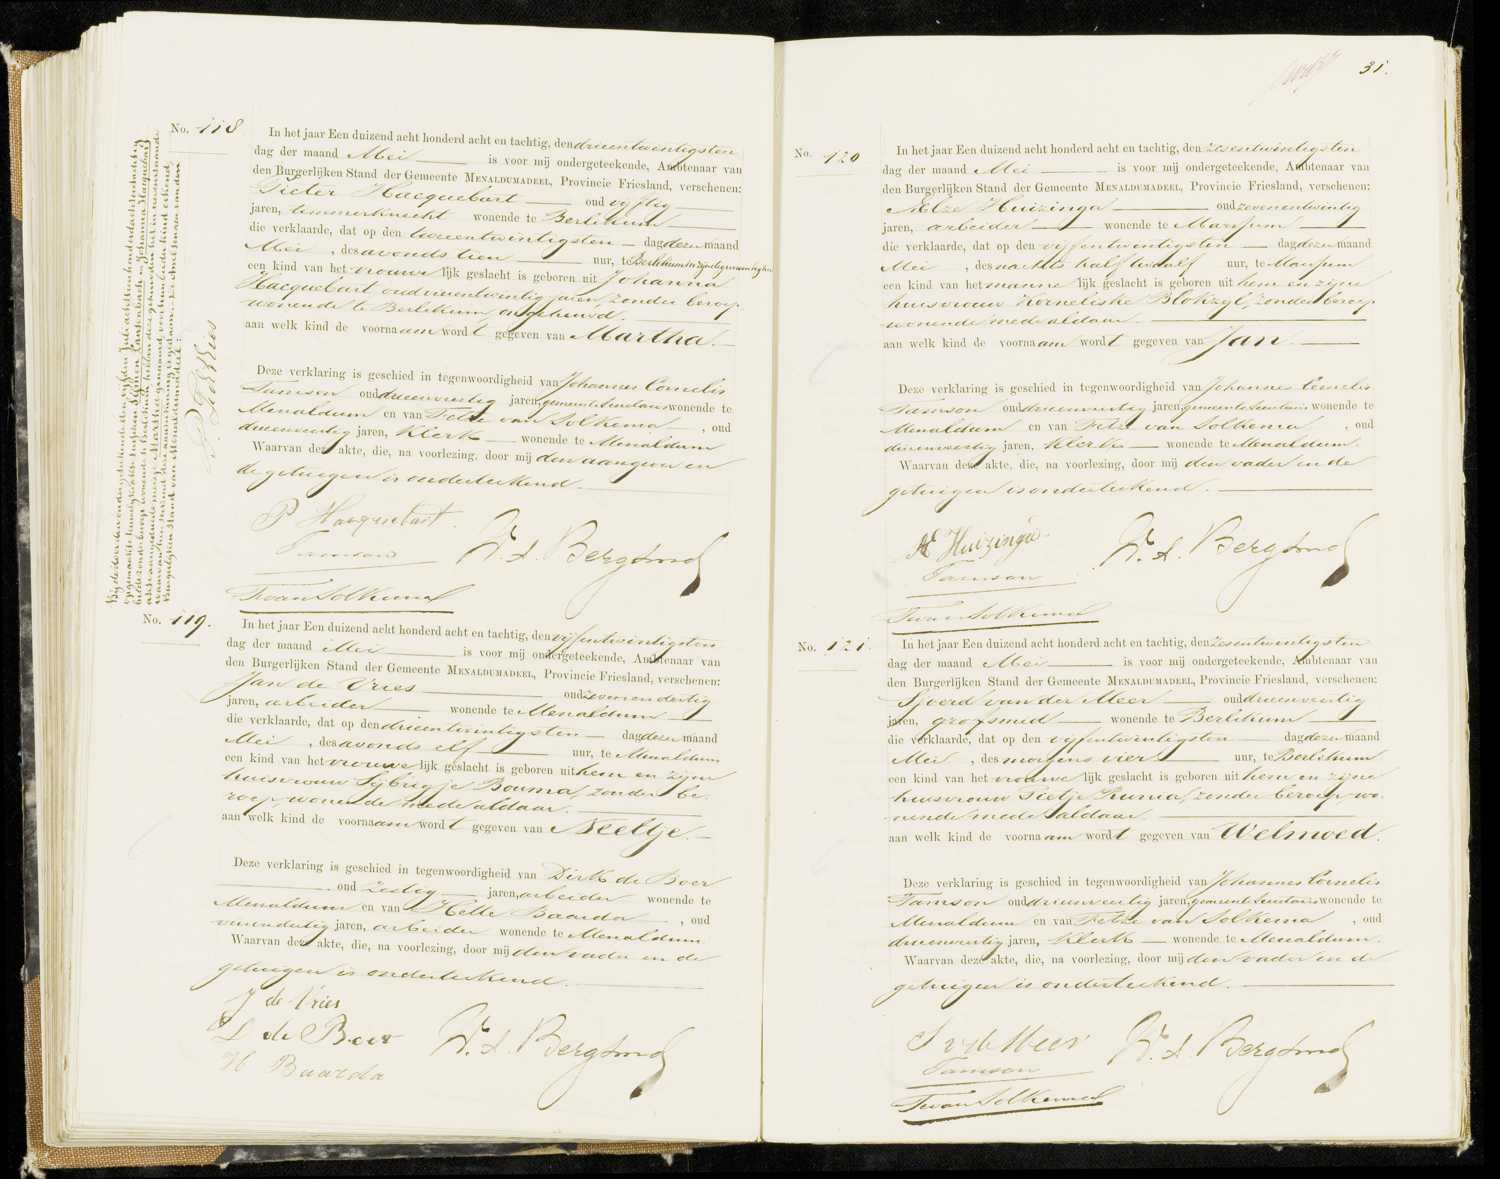 No. 118
In het jaar Een duizend acht honderd acht en tachtig, den drieentwintigsten
dag der maand Mei is voor mij ondergeteekende, Ambtenaar van
den Burgerlijken Stand der Gemeente MENALDUMADEEL, Provincie Friesland, verschenen:
Pieter Hacquebart oud vijftig
jaren, timmerknecht wonende te Berlikum
die verklaarde, dat op den tweeentwintigsten dag dezer maand
Mei, des avonds tien uur, te Berlikum in zijn
een kind van het vrouwelijk geslacht is geboren uit Johanna
Hacquebart oud vierentwintig jaren, zonder beroep
wonende te Berlikum, ongehuwd.
aan welk kind de voornaam wordt gegeven van Martha.
Deze verklaring is geschied in tegenwoordigheid van Johannes Cornelis
Tamson oud drieenveertig jaren, gemeente Secretaris wonende te
Menaldum en van Fetze van Solkema, oud
drieenveertig jaren, Klerk wonende te Menaldum
Waarvan deze akte, die, na voorlezing, door mij den aangever en
de getuigen is onderteekend.
P Hacquebart.
Tamson
W. A. Bergsma
F van Solkema
No. 119.
In het jaar Een duizend acht honderd acht en tachtig, den vijfentwintigsten
dag der maand Mei is voor mij ondergeteekende, Ambtenaar van
den Burgerlijken Stand der Gemeente MENALDUMADEEL, Provincie Friesland, verschenen:
Jan de Vries oud zevenendertig
jaren, arbeider wonende te Menaldum
die verklaarde, dat op den drieentwintigsten dag dezer maand
Mei, des avonds elf uur, te Menaldum
een kind van het vrouwelijk geslacht is geboren uit hem en zijne
huisvrouw Sijbrigje Bouma, zonder be-
roep wonende mede aldaar.
aan welk kind de voornaam wordt gegeven van Neeltje.
Deze verklaring is geschied in tegenwoordigheid van Dirk de Boer
oud zestig jaren, arbeider wonende te
Menaldum en van Helle Baarda, oud
vierendertig jaren, arbeider wonende te Menaldum
Waarvan deze akte, die, na voorlezing, door mij den vader en de
getuigen is onderteekend.
J de Vries
D de Boer
H Baarda
W. A. Bergsma
31.
No. 120
In het jaar Een duizend acht honderd acht en tachtig, den zesentwintigsten
dag der maand Mei is voor mij ondergeteekende, Ambtenaar van
den Burgerlijken Stand der Gemeente MENALDUMADEEL, Provincie Friesland, verschenen:
Huizinga oud zevenentwintig
jaren, arbeider wonende te Marssum
die verklaarde, dat op den vijfentwintigsten dag dezer maand
Mei, des nachts half twaalf uur, te Marssum
een kind van het mannelijk geslacht is geboren uit hem en zijne
huisvrouw Korneliske Blokzijl, zonder beroep
wonende mede aldaar.
aan welk kind de voornaam wordt gegeven van Jan.
Deze verklaring is geschied in tegenwoordigheid van Johannes Cornelis
Tamson oud drieenveertig jaren, gemeente Secretaris wonende te
Menaldum en van Fetze van Solkema, oud
drieenveertig jaren, Klerk wonende te Menaldum.
Waarvan deze akte, die, na voorlezing, door mij den vader en de
getuigen is onderteekend.
Huizinga
Tamson
W. A. Bergsma
F van Solkema
No. 121.
In het jaar Een duizend acht honderd acht en tachtig, den zesentwintigsten
dag der maand Mei is voor mij ondergeteekende, Ambtenaar van
den Burgerlijken Stand der Gemeente MENALDUMADEEL, Provincie Friesland, verschenen:
Sjoerd van der Meer oud drieenveertig
jaren, grofsmid wonende te Berlikum
die verklaarde, dat op den vijfentwintigsten dag dezer maand
Mei, des morgens vier uur, te Berlikum
een kind van het vrouwelijk geslacht is geboren uit hem en zijne
huisvrouw Pietje Kuma, zonder beroep wo-
nende mede aldaar
aan welk kind de voornaam wordt gegeven van Welmoed.
Deze verklaring is geschied in tegenwoordigheid van Johannes Cornelis
Tamson oud drieenveertig jaren, gemeente Secretaris wonende te
Menaldum en van Fetze van Solkema, oud
drieenveertig jaren, Klerk wonende te Menaldum.
Waarvan deze akte, die, na voorlezing, door mij den vader en de
getuigen is onderteekend.
S v de Meer
Tamson
W. A. Bergsma
F van Solkema